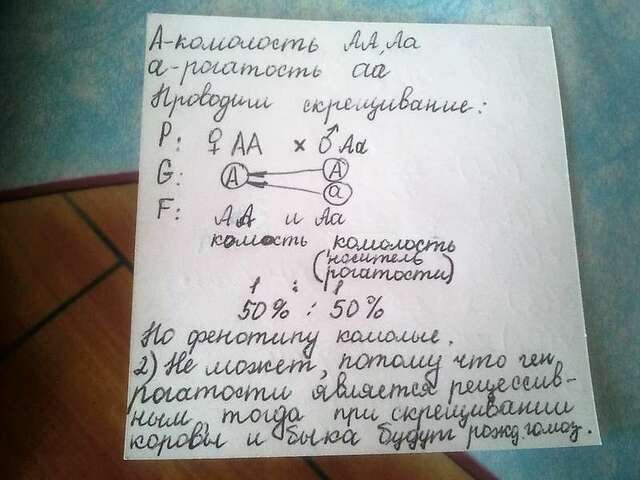 А-комолость АА, Аа
а-рогатость аа
Проводим скрещивание:
P: ♀ АА × ♂ Аа
G: А А
а
F: АА и Аа
комость комолость
(носитель
рогатости)
1 : 1
50% : 50%
По фенотипу комолые.
2) Не может, потому что ген
рогатости является рецессив-
ным, тогда при скрещивании
коровы и быка будут рожд. гомоз.